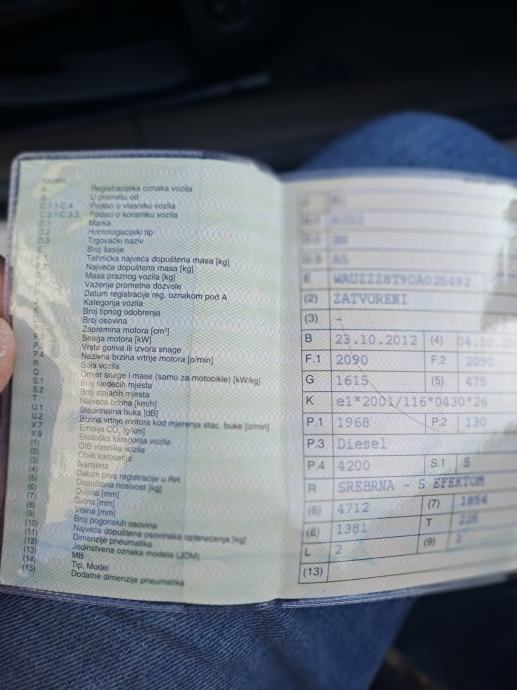 Registracijska oznaka vozila
U prometu od
C.1.1-C.4 Podaci o vlasniku vozila
C.3.1-C.3.3 Podaci o korisniku vozila
D.1 Marka
D.2 Homologacijski tip
D.3 Trgovački naziv
Broj šasije
Tehnička najveća dopuštena masa [kg]
Najveća dopuštena masa [kg]
Masa praznog vozila [kg]
Važenje prometne dozvole
Datum registracije reg. oznakom pod A
Kategorija vozila
Broj tipnog odobrenja
Broj osovina
Zapremina motora [cm³]
Snaga motora [kW]
Vrsta goriva ili izvora snage
P.4 Nazivna brzina vrtnje motora [o/min]
R Boja vozila
Q Omjer snage i mase (samo za motocikle) [kW/kg]
S.1 Broj sjedećih mjesta
S.2 Broj stajaćih mjesta
T Najveća brzina [km/h]
U.1 Stacionarna buka [dB]
U.2 Brzina vrtnje motora kod mjerenja stac. buke [o/min]
V.7 Emisija CO₂ [g/km]
V.9 Ekološka kategorija vozila
(1) OIB vlasnika vozila
(2) Oblik karoserije
(3) Namjena
(4) Datum prve registracije u RH
(5) Dopuštena nosivost [kg]
(6) Duljina [mm]
(7) Širina [mm]
(8) Visina [mm]
(9) Broj pogonskih osovina
(10) Najveća dopuštena osovinska opterećenja [kg]
(11) Dimenzije pneumatika
(12) Jedinstvena oznaka modela (JOM)
(13) MB
(14) Tip, Model
(15) Dodatne dimenzije pneumatika
E
(2) ZATVORENI
(3) –
B 23.10.2012 (4)
F.1 2090 F.2 2090
G 1615 (5) 475
K e1*2001/116*0430*26
P.1 1968 P.2 130
P.3 Diesel
P.4 4200 S.1 5
R SREBRNA – S EFEKTOM
(6) 4712 (7) 1854
(8) 1381 T
L 2 (9)
(13)